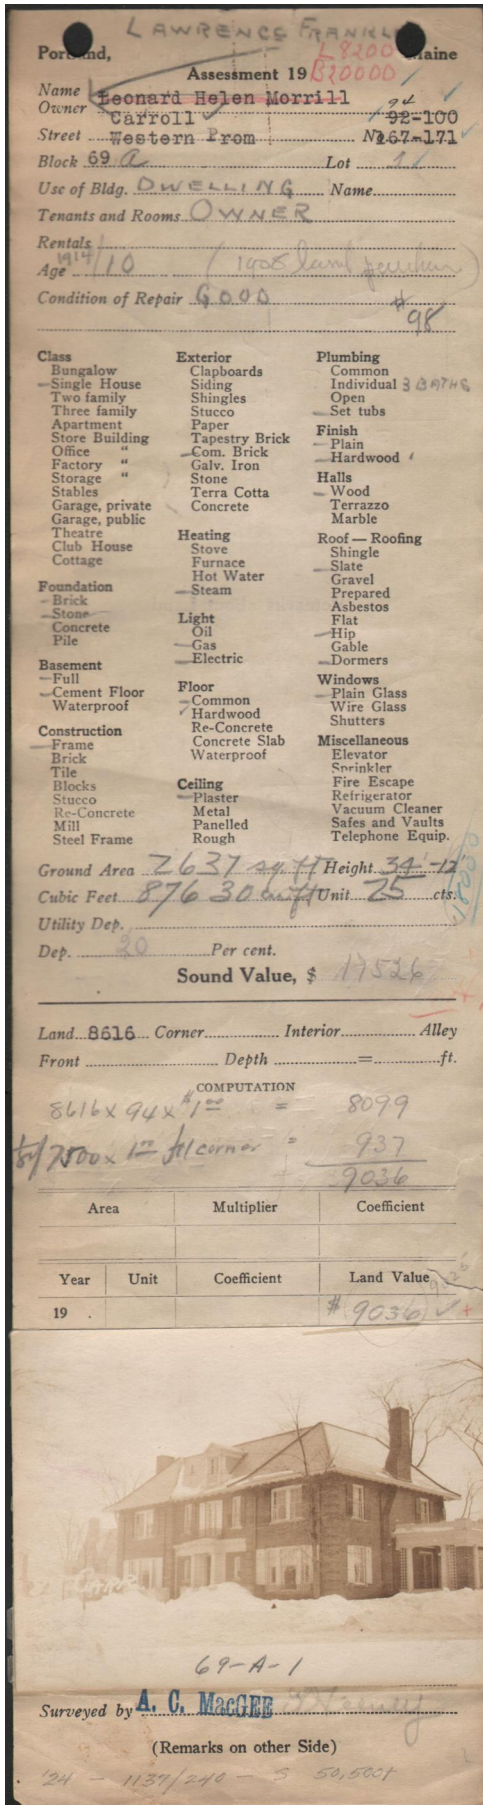 LAWRENCE FRANKL
Portland, Maine
L8200
Assessment 19 B20000
Name Leonard Helen Morrill
Owner Carroll 94 92-100
Street Western Prom No 167-171
Block 69 A Lot 1
Use of Bldg. DWELLING Name
Tenants and Rooms OWNER
Rentals
Age 1914/10 (1908 land purchase)
Condition of Repair GOOD
$98
Class
Bungalow
Single House
Two family
Three family
Apartment
Store Building
Office "
Factory "
Storage "
Stables
Garage, private
Garage, public
Theatre
Club House
Cottage
Foundation
Brick
Stone
Concrete
Pile
Basement
Full
Cement Floor
Waterproof
Construction
Frame
Brick
Tile
Blocks
Stucco
Re-Concrete
Mill
Steel Frame
Exterior
Clapboards
Siding
Shingles
Stucco
Paper
Tapestry Brick
Com. Brick
Galv. Iron
Stone
Terra Cotta
Concrete
Heating
Stove
Furnace
Hot Water
Steam
Light
Oil
Gas
Electric
Floor
Common
Hardwood
Re-Concrete
Concrete Slab
Waterproof
Ceiling
Plaster
Metal
Panelled
Rough
Plumbing
Common
Individual 3 BATHS
Open
Set tubs
Finish
Plain
Hardwood
Halls
Wood
Terrazzo
Marble
Roof — Roofing
Shingle
Slate
Gravel
Prepared
Asbestos
Flat
Hip
Gable
Dormers
Windows
Plain Glass
Wire Glass
Shutters
Miscellaneous
Elevator
Sprinkler
Fire Escape
Refrigerator
Vacuum Cleaner
Safes and Vaults
Telephone Equip.
Ground Area 2637 sq ft Height 34'-12'
Cubic Feet 87630 cu ft Unit 25 cts.
18000
Utility Dep.
Dep. 20 Per cent.
Sound Value, $ 17526
Land 8616 Corner Interior Alley
Front Depth = ft.
COMPUTATION
8616 x 94 x $1 00 = 8099
7500 x 1 00 corner = 937
9036
Area Multiplier Coefficient
Year Unit Coefficient Land Value
19 . $ 9036
69-A-1
Surveyed by A. C. MacGEE
(Remarks on other Side)
'24 - 1137/240 - S 50,500+